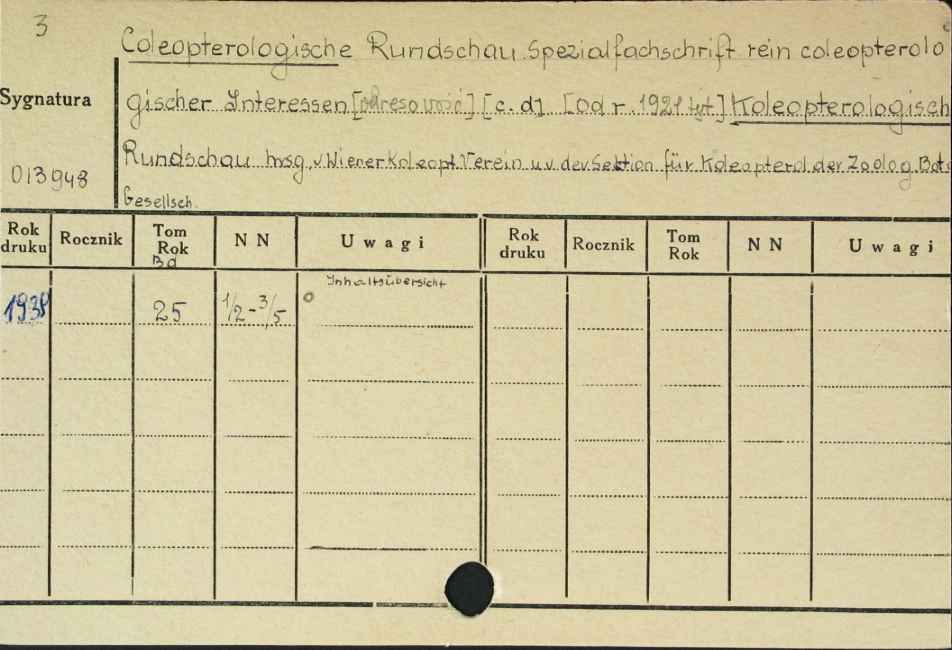 3
Coleopterologische Rundschau. Spezialfachschrift rein coleopterolo
Sygnatura
gischer Interessen [adresować] [c.d] [Od r. 1921 tyt.] Koleopterologisch
Rundschau hrsg. v. Wiener Koleopt. Verein u.v. der Sektion für Koleopterol. der Zoolog. Bot.
013948
Gesellsch.
Rok druku Rocznik Tom Rok Bd N N Uwagi Rok druku Rocznik Tom Rok N N Uwagi
Inhaltsübersicht
1938 25 1/2-3/5